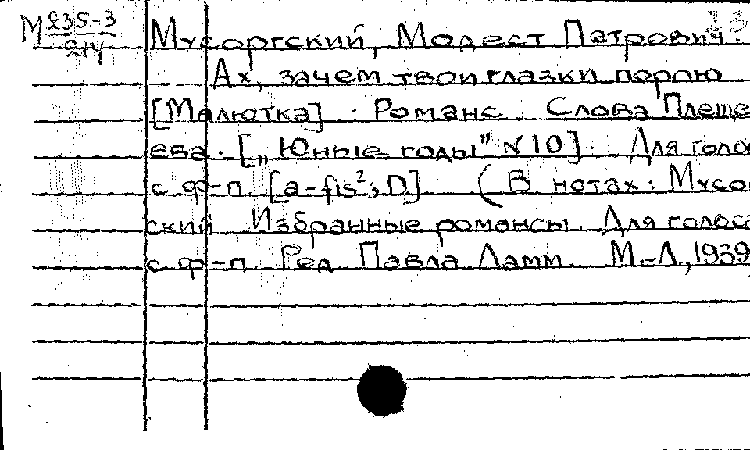 М 235-3
214
Мусоргский, Модест Патрович.
Ах, зачем твои глазки порою
[Малютка]. Романс. Слова Плеще
ева. [„Юные годы" №10]. Для голос
с ф-п. [a-fis²; D]. (В нотах: Мусо
ский Избранные романсы. Для голос
с ф-п. Ред. Павла Ламм. М-Л., 1939